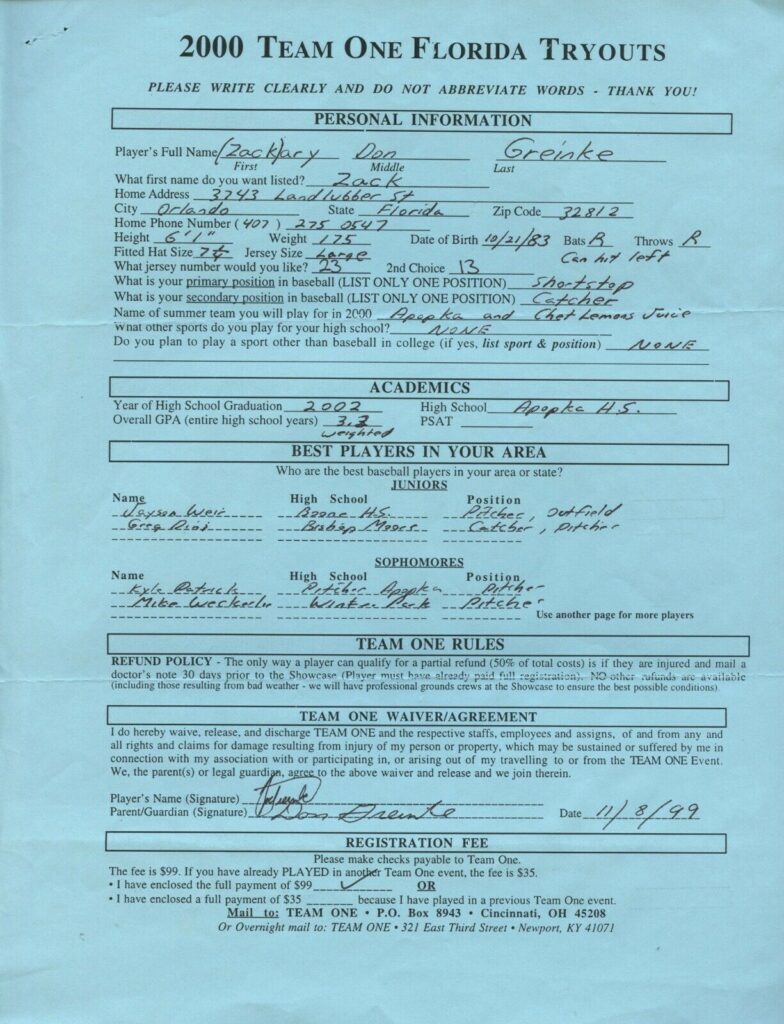 2000 TEAM ONE FLORIDA TRYOUTS
PLEASE WRITE CLEARLY AND DO NOT ABBREVIATE WORDS - THANK YOU!
PERSONAL INFORMATION
Player's Full Name (Zack)ary Don Greinke
First Middle Last
What first name do you want listed? Zack
Home Address 3743 Landlubber St
City Orlando State Florida Zip Code 32812
Home Phone Number (407) 275 0547
Height 6'1" Weight 175 Date of Birth 10/21/83 Bats R Throws R
Fitted Hat Size Jersey Size Large Can hit left
What jersey number would you like? 23 2nd Choice 13
What is your primary position in baseball (LIST ONLY ONE POSITION) Shortstop
What is your secondary position in baseball (LIST ONLY ONE POSITION) Catcher
Name of summer team you will play for in 2000 Apopka and Chet Lemons Juice
What other sports do you play for your high school? NONE
Do you plan to play a sport other than baseball in college (if yes, list sport & position) NONE
ACADEMICS
Year of High School Graduation 2002 High School Apopka H.S.
Overall GPA (entire high school years) 3.3 PSAT
weighted
BEST PLAYERS IN YOUR AREA
Who are the best baseball players in your area or state?
JUNIORS
Name High School Position
Jayson Weir Boone H.S. Pitcher, outfield
Greg Bishop Moore Catcher, Pitcher
SOPHOMORES
Name High School Position
Kyle Patrick Pitcher Apopka Pitcher
Mike Winter Park Pitcher
Use another page for more players
TEAM ONE RULES
REFUND POLICY - The only way a player can qualify for a partial refund (50% of total costs) is if they are injured and mail a
doctor's note 30 days prior to the Showcase (Player must have already paid full registration). NO other refunds are available
(including those resulting from bad weather - we will have professional grounds crews at the Showcase to ensure the best possible conditions)
TEAM ONE WAIVER/AGREEMENT
I do hereby waive, release, and discharge TEAM ONE and the respective staffs, employees and assigns, of and from any and
all rights and claims for damage resulting from injury of my person or property, which may be sustained or suffered by me in
connection with my association with or participating in, or arising out of my travelling to or from the TEAM ONE Event.
We, the parent(s) or legal guardian, agree to the above waiver and release and we join therein.
Player's Name (Signature)
Parent/Guardian (Signature) Don Greinke Date 11/8/99
REGISTRATION FEE
Please make checks payable to Team One.
The fee is $99. If you have already PLAYED in another Team One event, the fee is $35.
• I have enclosed the full payment of $99 OR
• I have enclosed a full payment of $35 because I have played in a previous Team One event.
Mail to: TEAM ONE • P.O. Box 8943 • Cincinnati, OH 45208
Or Overnight mail to: TEAM ONE • 321 East Third Street • Newport, KY 41071